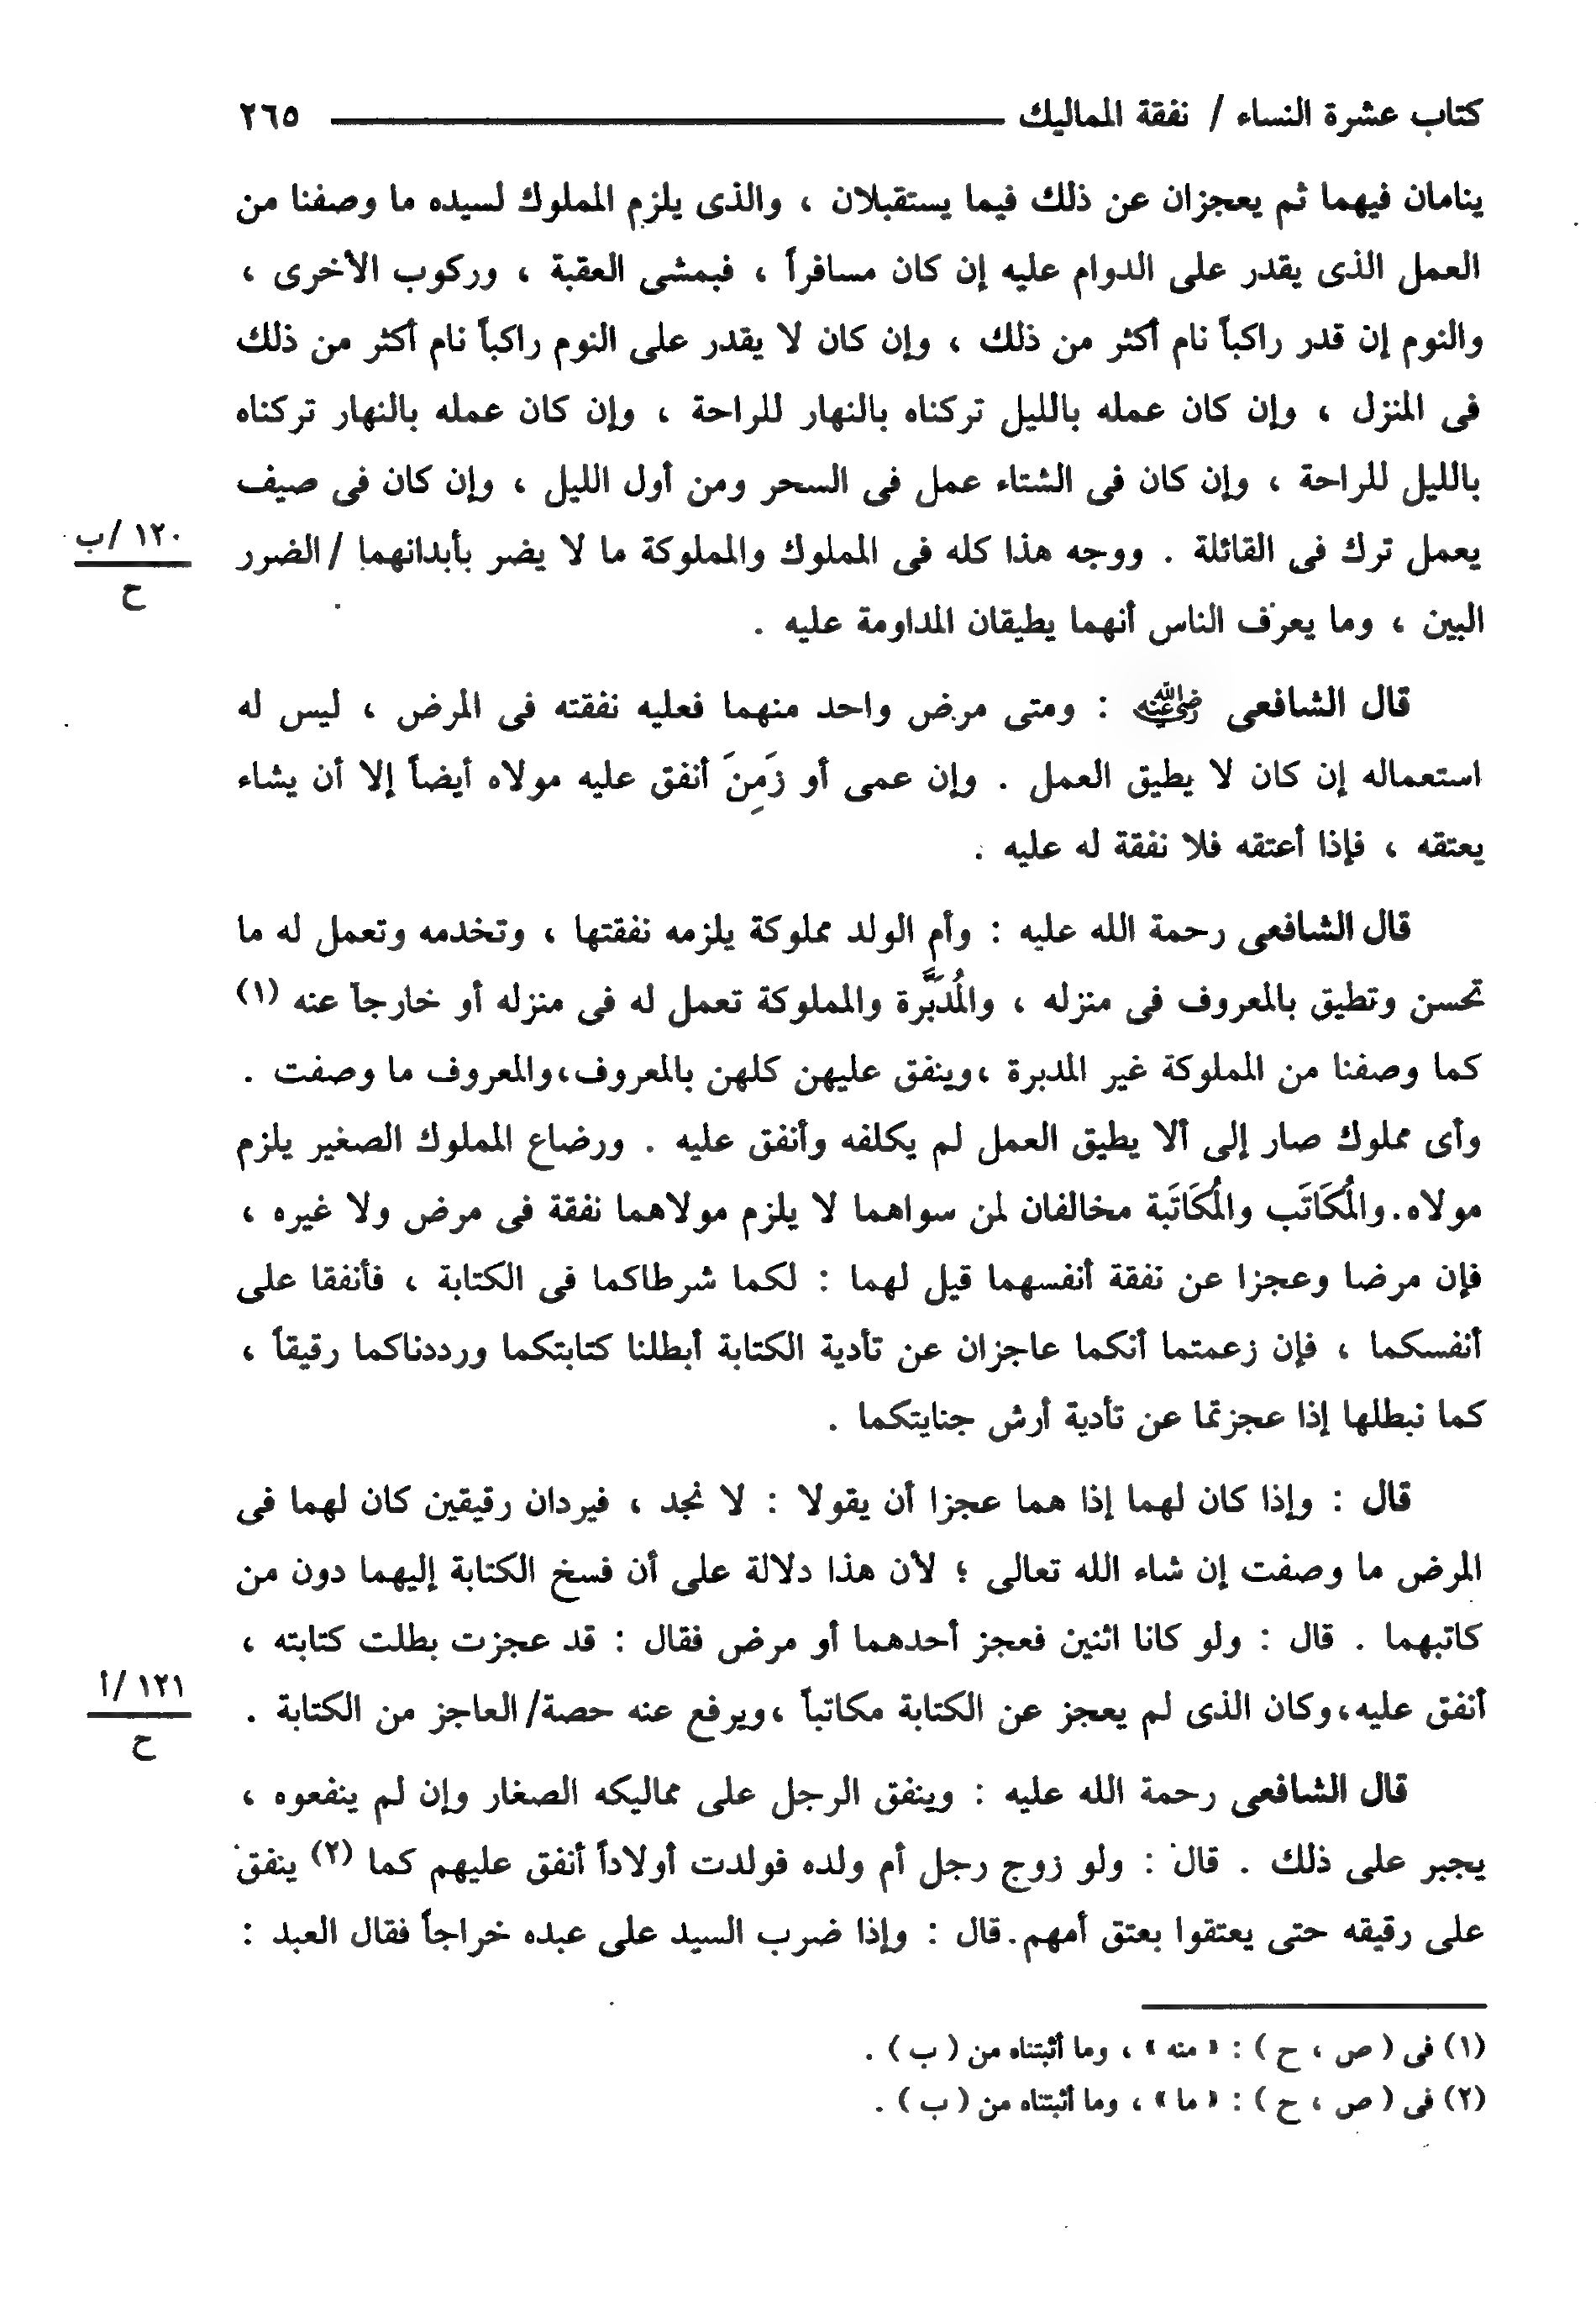 كتاب عشرة النساء / نفقة المماليك ٢٦٥
ينامان فيهما ثم يعجزان عن ذلك فيما يستقبلان ، والذى يلزم المملوك لسيده ما وصفنا من
العمل الذى يقدر على الدوام عليه إن كان مسافراً ، فبمشى العقبة ، وركوب الأخرى ،
والنوم إن قدر راكباً نام أكثر من ذلك ، وإن كان لا يقدر على النوم راكباً نام أكثر من ذلك
فى المنزل ، وإن كان عمله بالليل تركناه بالنهار للراحة ، وإن كان عمله بالنهار تركناه
بالليل للراحة ، وإن كان فى الشتاء عمل فى السحر ومن أول الليل ، وإن كان فى صيف
يعمل ترك فى القائلة . ووجه هذا كله فى المملوك والمملوكة ما لا يضر بأبدانهما / الضرر
١٢٠ /ب
ح
البين ، وما يعرف الناس أنهما يطيقان المداومة عليه .
قال الشافعى رضي الله عنه : ومتى مرض واحد منهما فعليه نفقته فى المرض ، ليس له
استعماله إن كان لا يطيق العمل . وإن عمى أو زَمِنَ أنفق عليه مولاه أيضاً إلا أن يشاء
يعتقه ، فإذا أعتقه فلا نفقة له عليه .
قال الشافعى رحمة الله عليه : وأم الولد مملوكة يلزمه نفقتها ، وتخدمه وتعمل له ما
تحسن وتطيق بالمعروف فى منزله ، والمُدَبَّرة والمملوكة تعمل له فى منزله أو خارجاً عنه (١)
كما وصفنا من المملوكة غير المدبرة ،وينفق عليهن كلهن بالمعروف،والمعروف ما وصفت .
وأى مملوك صار إلى ألا يطيق العمل لم يكلفه وأنفق عليه . ورضاع المملوك الصغير يلزم
مولاه.والمُكَاتَب والمُكَاتَبة مخالفان لمن سواهما لا يلزم مولاهما نفقة فى مرض ولا غيره ،
فإن مرضا وعجزا عن نفقة أنفسهما قيل لهما : لكما شرطاكما فى الكتابة ، فأنفقا على
أنفسكما ، فإن زعمتما أنكما عاجزان عن تأدية الكتابة أبطلنا كتابتكما ورددناكما رقيقاً ،
كما نبطلها إذا عجزتما عن تأدية أرش جنايتكما .
قال : وإذا كان لهما إذا هما عجزا أن يقولا : لا نجد ، فيردان رقيقين كان لهما فى
المرض ما وصفت إن شاء الله تعالى ؛ لأن هذا دلالة على أن فسخ الكتابة إليهما دون من
كاتبهما . قال : ولو كانا اثنين فعجز أحدهما أو مرض فقال : قد عجزت بطلت كتابته ،
أنفق عليه،وكان الذى لم يعجز عن الكتابة مكاتباً ،ويرفع عنه حصة/ العاجز من الكتابة .
١٢١ /أ
ح
قال الشافعى رحمة الله عليه : وينفق الرجل على مماليكه الصغار وإن لم ينفعوه ،
يجبر على ذلك . قال : ولو زوج رجل أم ولده فولدت أولاداً أنفق عليهم كما (٢) ينفق
على رقيقه حتى يعتقوا بعتق أمهم.قال : وإذا ضرب السيد على عبده خراجاً فقال العبد :
(١) فى ( ص ، ح ) : « منه » ، وما أثبتناه من ( ب ) .
(٢) فى ( ص ، ح ) : « ما » ، وما أثبتناه من ( ب ) .